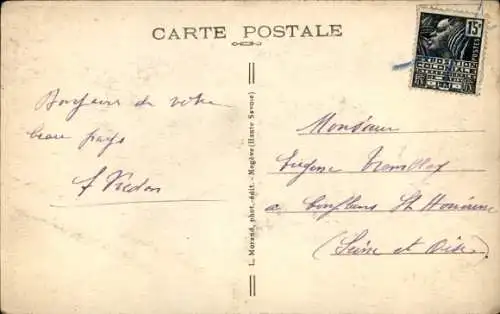 CARTE POSTALE
15c
POSTES
EXPOSITION
COLONIALE
Bonjour de votre
beau pays
L. Morand, phot.-édit. - Megève (Haute Savoie)
Monsieur
Eugène Tremblay
a Conflans St Honorine
(Seine et Oise)